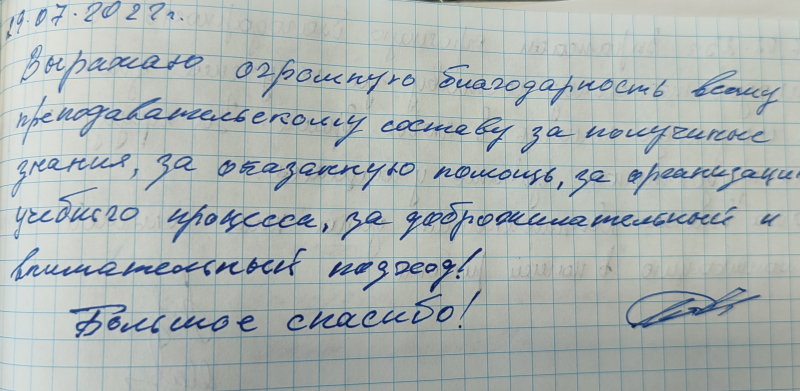 29.07.2022г.
Выражаю огромную благодарность всему
преподавательскому составу за получиные
знания, за оказанную помощь, за организаци
учебного процесса, за доброжилательный и
внимательный подход!
Большое спасибо!